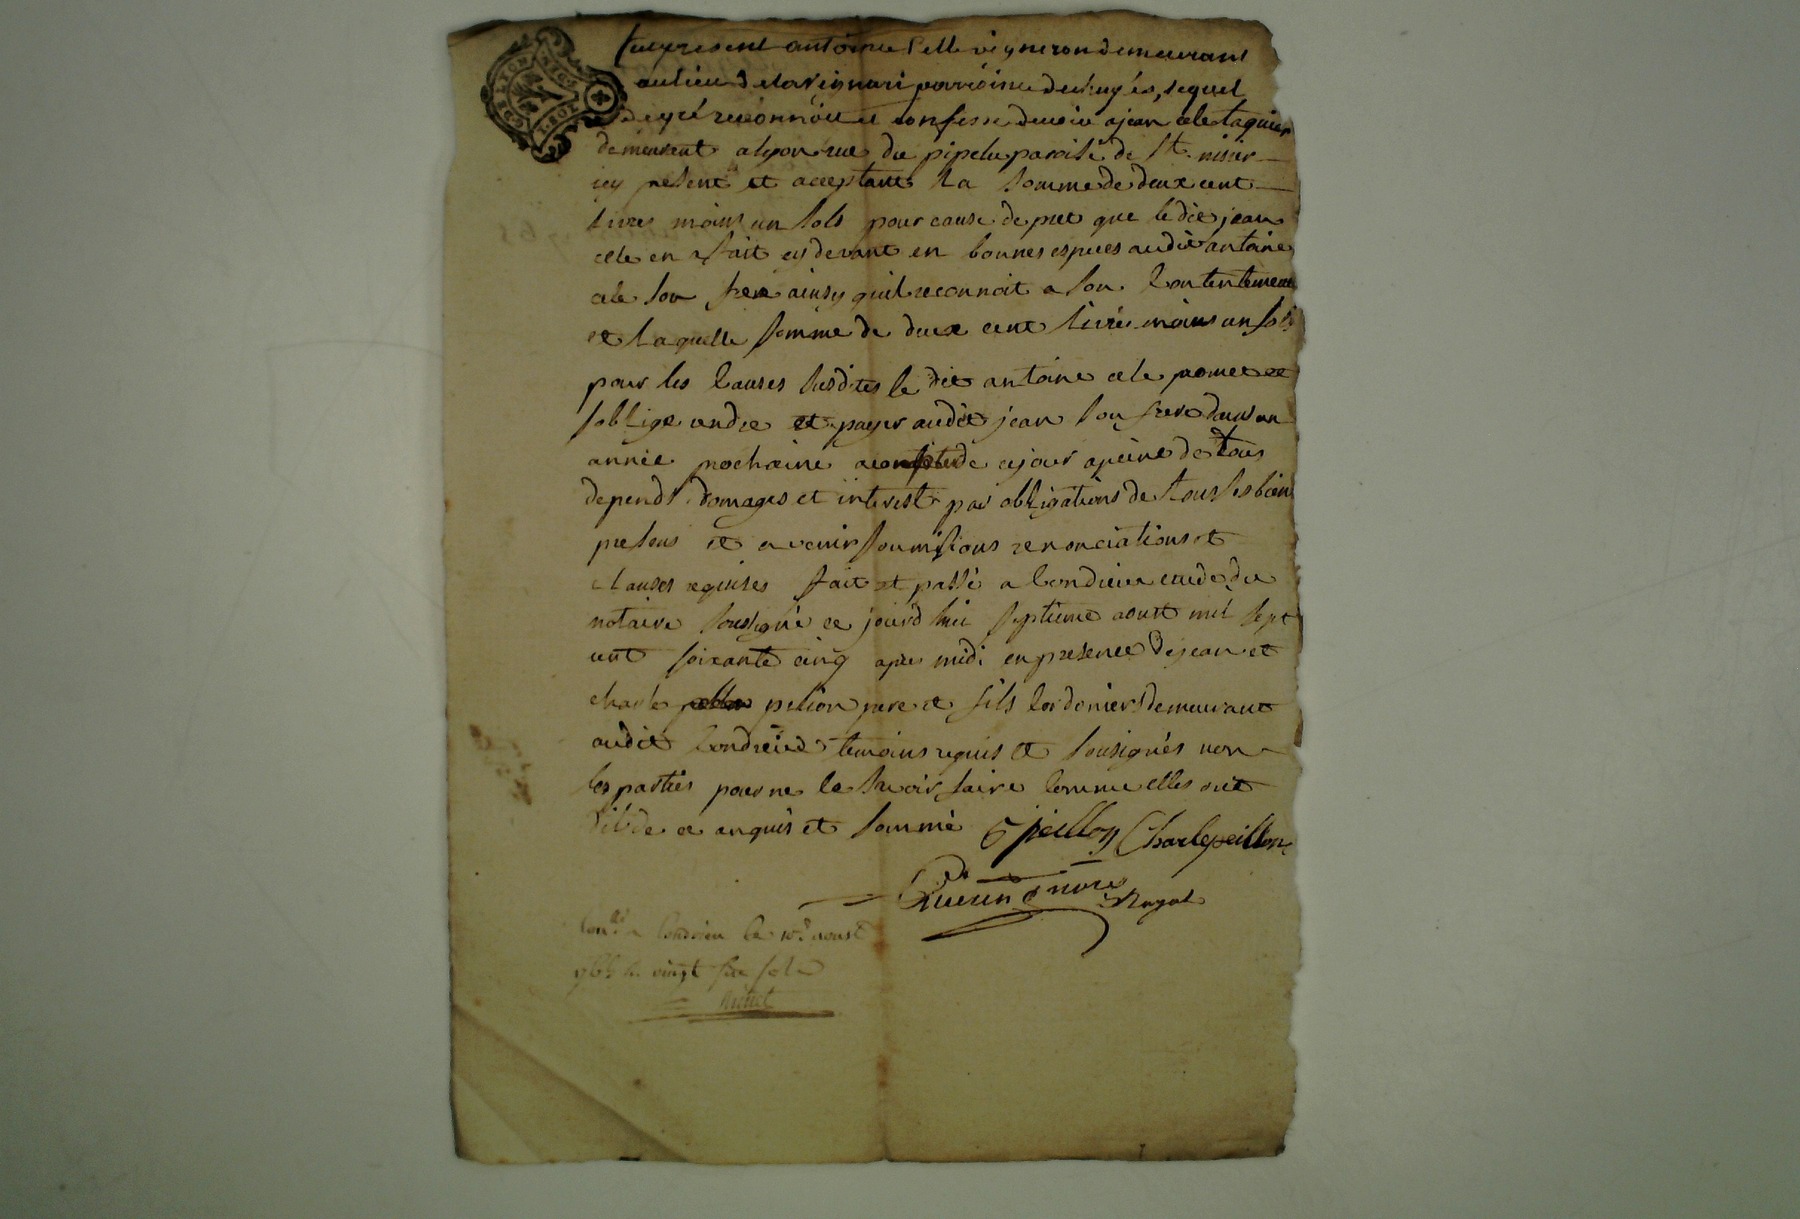 fut present antoine celle vigneron demeurant
au lieu de lavignari parroisse de lequel
de gré reconnoit et confesse devoir a jean cele taquier
demeurent a lyon rue du pipelu paroise de St. nisier
icy present et acceptant La somme de deux cent
livres moins un sols pour cause de pret que le dit jean
cele en a fait cy devant en bonnes especes audit antoine
cele son frere ainsy quil reconnoit a son Contentement
et Laquelle somme de deux cent livres moins un sols
pour les Causes susdites le dit antoine cele promet et
soblige rendre et payer audit jean son frere dans un
année prochaine a compter de ce jour a peine de tous
depends domages et interest par obligations de tous ses bien
presens et a venir soumisions renonciations et
clauses requises fait et passé a Condrieu etude du
notaire sousigné ce jourd'hui septieme aoust mil sept
cent soixante cinq apres midi en presence de jean et
charle pelion pere et fils Cordoniers demeurant
audit Condrieu temoins requis et sousignés non
les parties pour ne le savoir faire Comme elles ont
dit de ce enquis et sommé G peillon Charle peillon
Guerin nore Royal
Conlé a Condrieu le 10e aoust
1765 R. vingt six sols